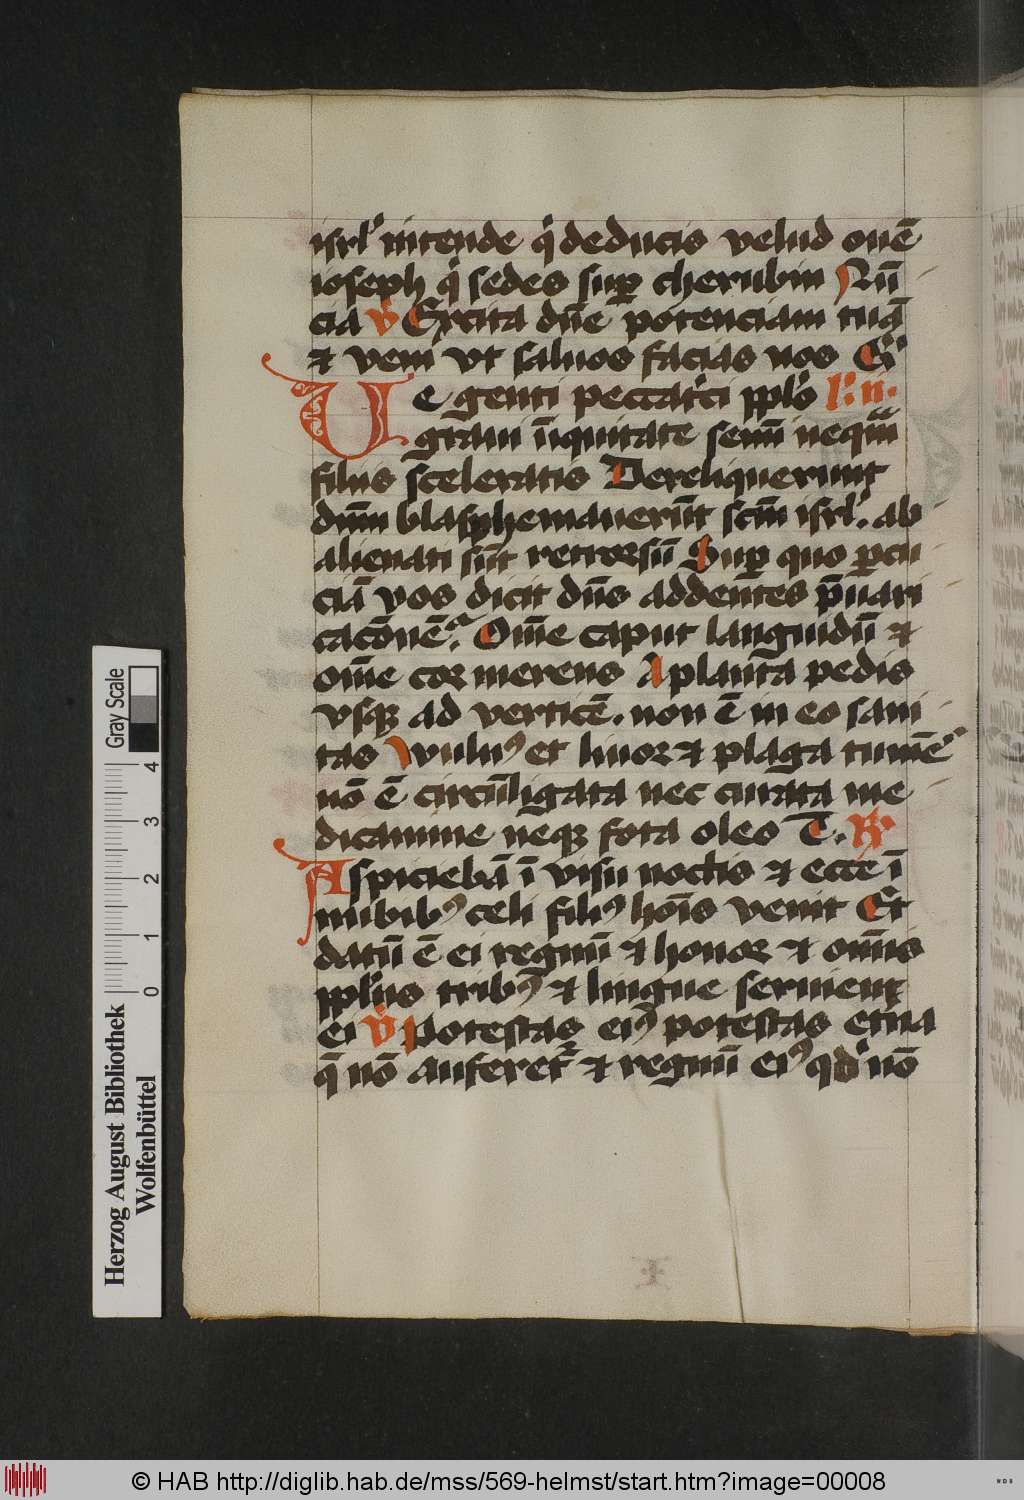 isrl' intende q' deducis velud ouē
ioseph q' sedes sup cherubin Nū
cia V Excita dn̄e potenciam tuā
et veni vt saluos facias nos G'
Ve genti peccat'ci pplo l': n.
graui īiquitate semī neqm̄
filiis sceleratis Dereliquerunt
dn̄m blasphemauerūt scm̄ isrl'. ab
alienati sūt retrorsū Sup quo pcu
ciā vos dicit dn̄s addentes p̄uari
cacōnē. Om̄e caput languidū et
om̄e cor merens A planta pedis
vsqꝫ ad verticē. non ē in eo sani
tas Wuluꝰ et liuor et plaga tumēs
nō ē circūligata nec curata me
dicamine neqꝫ fota oleo T. R
Aspiciebā ī visu noctis et ecce ī
nubibꝰ celi filiꝰ hoīs venit Et
datū ē ei regnū et honor et om̄is
pplus tribꝰ et lingue seruient
ei V Potestas eiꝰ potestas etna
q̄ nō auferet' et regnū eiꝰ qd' nō
Gray Scale
4 3 2 1 0
Herzog August Bibliothek
Wolfenbüttel
© HAB http://diglib.hab.de/mss/569-helmst/start.htm?image=00008